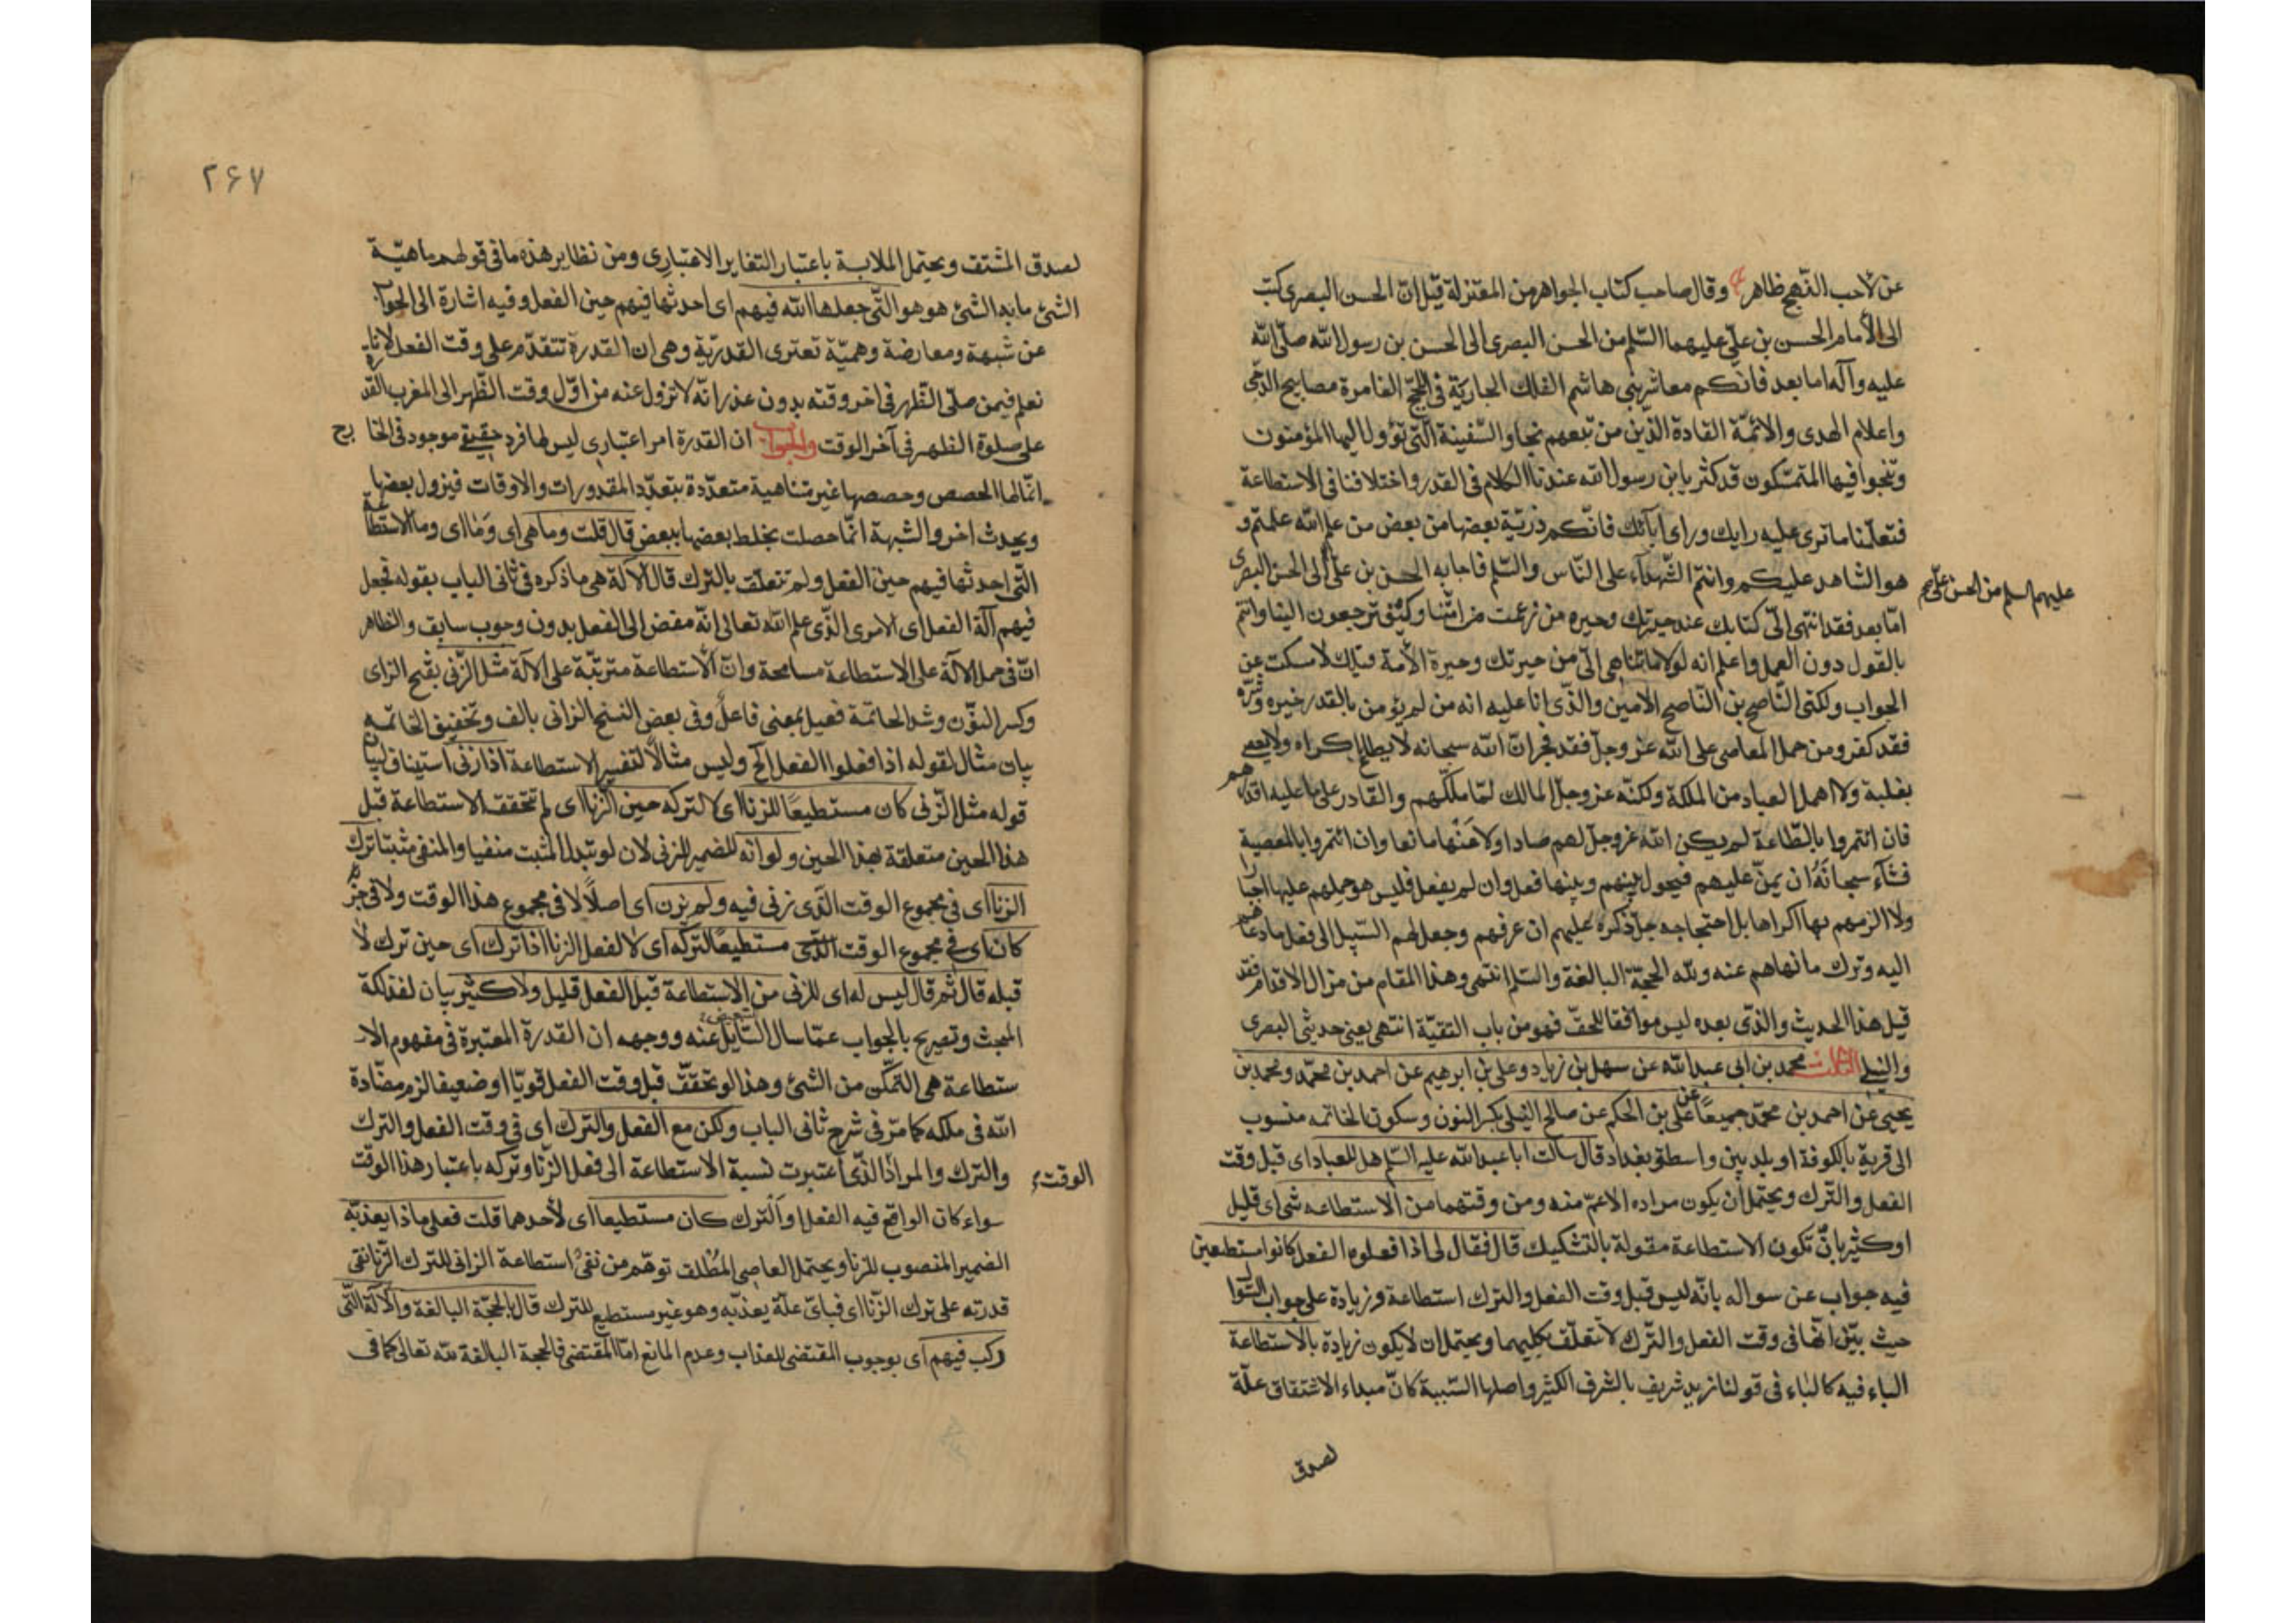 عن لاحب النهج ظاهر وقال صاحب كتاب الجواهر من المعتزلة قيل ان الحسن البصرى كتب
الى الأمام الحسن بن على عليهما السّلم من الحسن البصرى الى الحسن بن رسول الله صلّى الله
عليه وآله اما بعد فانكم معاشر بنى هاشم الفلك الجارية فى اللجج الغامرة مصابيح الدجى
واعلام الهدى والائمّة القادة الذين من تبعهم نجا والسّفينة الّتى تؤول اليها المؤمنون
وينجوا فيها المتمسّكون قد كثر يابن رسول الله عندنا الكلام فى القدر واختلافنا فى الاستطاعة
فتعلّمنا ما ترى عليه رايك وراى آبائك فانّكم ذريّة بعضها من بعض من علم الله علمتم و
هو الشاهد عليكم وانتم الشّهدآء على النّاس والسّلم فاجابه الحسن بن على الى الحسن البصرى
عليهم السلم من الحسن بن على
امّا بعد فقد انتهى الىّ كتابك عند حيرتك وحيره من زعمت من امّتنا وكيف ترجعون الينا وانتم
بالقول دون العمل واعلم انه لولا ما تناهى الىّ من حيرتك وحيرة الأمة قبلك لامسكت عن
الجواب ولكنى النّاصح بن النّاصح الامين والذّى انا عليه انه من لم يؤمن بالقدر خيره وشرّه
فقد كفر ومن حمل المعاصى على الله عز وجلّ فقد فجر انّ الله سبحانه لا يطاع باكراه ولا يعصى
بغلبة ولا اهمل العباد من الملكة ولكنّه عز وجلّ المالك لمّا ملّكهم والقادر على ما عليه اقدرهم
فان ائتمروا بالطّاعة لم يكن الله عز وجل لهم صادا ولا عنها مانعا وان ائتمروا بالمعصية
فشآء سبحانه ان يمنّ عليهم فيحول بينهم وبينها فعل وان لم يفعل فليس هو حملهم عليها اجبارا
ولا الزمهم بها اكراها بل احتجاجه جلّ ذكره عليهم ان عرفهم وجعل لهم السّبيل الى فعل ما دعاهم
اليه وترك ما نهاهم عنه ولله الحجّة البالغة والسّلم انتهى وهذا المقام من مزال الاقدام فقد
قيل هذا الحديث والذّى بعده ليس موافقا للحقّ فهو من باب التقيّة انتهى يعنى حديثى البصرى
والنيلى الثالث محمد بن ابى عبد الله عن سهل بن زياد وعلى بن ابرهيم عن احمد بن محمّد ومحمد بن
يحيى عن احمد بن محمّد جميعًا عن على بن الحكم عن صالح النيلى بكسر النون وسكون الخاتمه منسوب
الى قرية بالكوفة او بلد بين واسط وبغداد قال سالت ابا عبد الله عليه السّلم هل للعباد اى قبل وقت
الفعل والتّرك ويحتمل أن يكون مراده الاعمّ منه ومن وقتهما من الاستطاعه شى اى قليل
اوكثير بان تكون الاستطاعة مقولة بالتشكيك قال فقال لى اذا فعلوا الفعل كانوا مستطيعين
فيه جواب عن سواله بانّه ليس قبل وقت الفعل والترك استطاعة وزيادة على جواب السّوال
حيث بيّن انّها فى وقت الفعل والتّرك لا تتعلّق بكليهما ويحتمل ان لا يكون زيادة بالاستطاعة
الباء فيه كالباء فى قولنا زيد شريف بالشرف الكثير واصلها السّببية كانّ مبداء الاشتقاق علّة
لصدق
٢۶٧
لصدق المشتق ويحتمل الملابسة باعتبار التغاير الاعتبارى ومن نظاير هذه ما فى قولهم ماهيّة
الشئ ما به الشئ هو هو الّتى جعلها الله فيهم اى احدثها فيهم حين الفعل وفيه اشارة الى الجواب
عن شبهة ومعارضة وهميّة تعترى القدريّة وهى ان القدرة تتقدّم على وقت الفعل لانا
نعلم فيمن صلّى الظّهر فى اخر وقته بدون عذر انّه لا تزول عنه من اوّل وقت الظّهر الى المغرب القدرة
على صلوة الظهر فى آخر الوقت والجواب ان القدرة امر اعتبارى ليس لها فرد حقيقى موجود فى الخارج
انّما لها الحصص وحصصها غير متناهية متعدّدة بتعدّد المقدورات والاوقات فيزول بعضها
ويحدث اخر والشبهة انّما حصلت بخلط بعضها ببعض قال قلت وما هى اى وَما اى وما الاستطاعة
الّتى احدثها فيهم حين الفعل ولم تتعلّق بالترك قال الآلة هى ما ذكره فى ثانى الباب بقوله فجعل
فيهم آلة الفعل اى الامرى الذّى علم الله تعالى انّه مفض الى الفعل بدون وجوب سابق والظاهر
انّ فى حمل الآلة على الاستطاعة مسامحة وانّ الاستطاعة مترتبّة على الآلة مثل الزّنى بفتح الزاى
وكسر النوّن وشد الخاتمة فعيل بمعنى فاعل وفى بعض النسخ الزانى بالف وتخفيف الخاتمه
بيان مثال لقوله اذا فعلوا الفعل الخ وليس مثالًا لتفسير الاستطاعة اذا زنى استيناف لبيان
قوله مثل الزّنى كان مستطيعًا للزنا اى لا لتركه حين الزنا اى لم تتحقق الاستطاعة قبل
هذا الحين متعلقة بهذا الحين ولو انه للضمير للزنى لان لو يبدل المثبت منفيا والمنفى مثبتا ترك
الزنا اى فى مجموع الوقت الذّى زنى فيه ولم يزن اى اصلًا لا فى مجموع هذا الوقت ولا فى جزئه
كان اى فى مجموع الوقت الذّى مستطيعًا لتركه اى لا لفعل الزنا اذا ترك اى حين ترك لا
قبله قال ثم قال ليس له اى للزنى من الاستطاعة قبل الفعل قليل ولا كثير بيان لفذلكة
المبحث وتصريح بالجواب عمّا سال السّايل عنه ووجهه ان القدرة المعتبرة فى مفهوم الا
ستطاعة هى التمكّن من الشئ وهذا لو تحقّق قبل وقت الفعل قويّا او ضعيفا لزم مضّادة
الله فى ملكه كما مرّ فى شرح ثانى الباب ولكن مع الفعل والترك اى فى وقت الفعل والترك
والترك والمراد الذّى اعتبرت نسبة الاستطاعة الى فعل الزّنا وتركه باعتبار هذا الوقت
الوقت
سواء كان الواقع فيه الفعل او الترك كان مستطيعا اى لأحدهما قلت فعلى ماذا يعذبّه
الضمير المنصوب للزنا ويحتمل العاصى المطلق توهّم من نفى استطاعة الزانى للترك الزّنا نفى
قدرته على ترك الزّنا اى فباىّ علّة يعذبّه وهو غير مستطيع للترك قال بالحجّة البالغة والآلة الّتى
ركب فيهم اى بوجوب المقتضى للعذاب وعدم المانع امّا المقتضى فالحجة البالغة لله تعالى كما فى